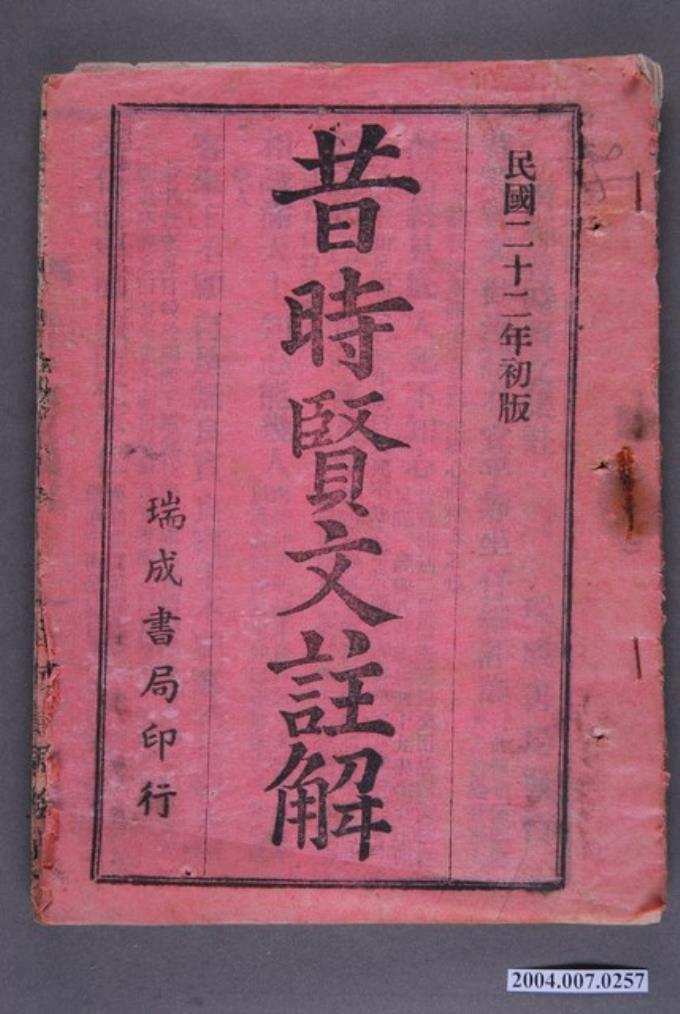 民國二十二年初版
昔時賢文註解
瑞成書局印行
2004.007.0257